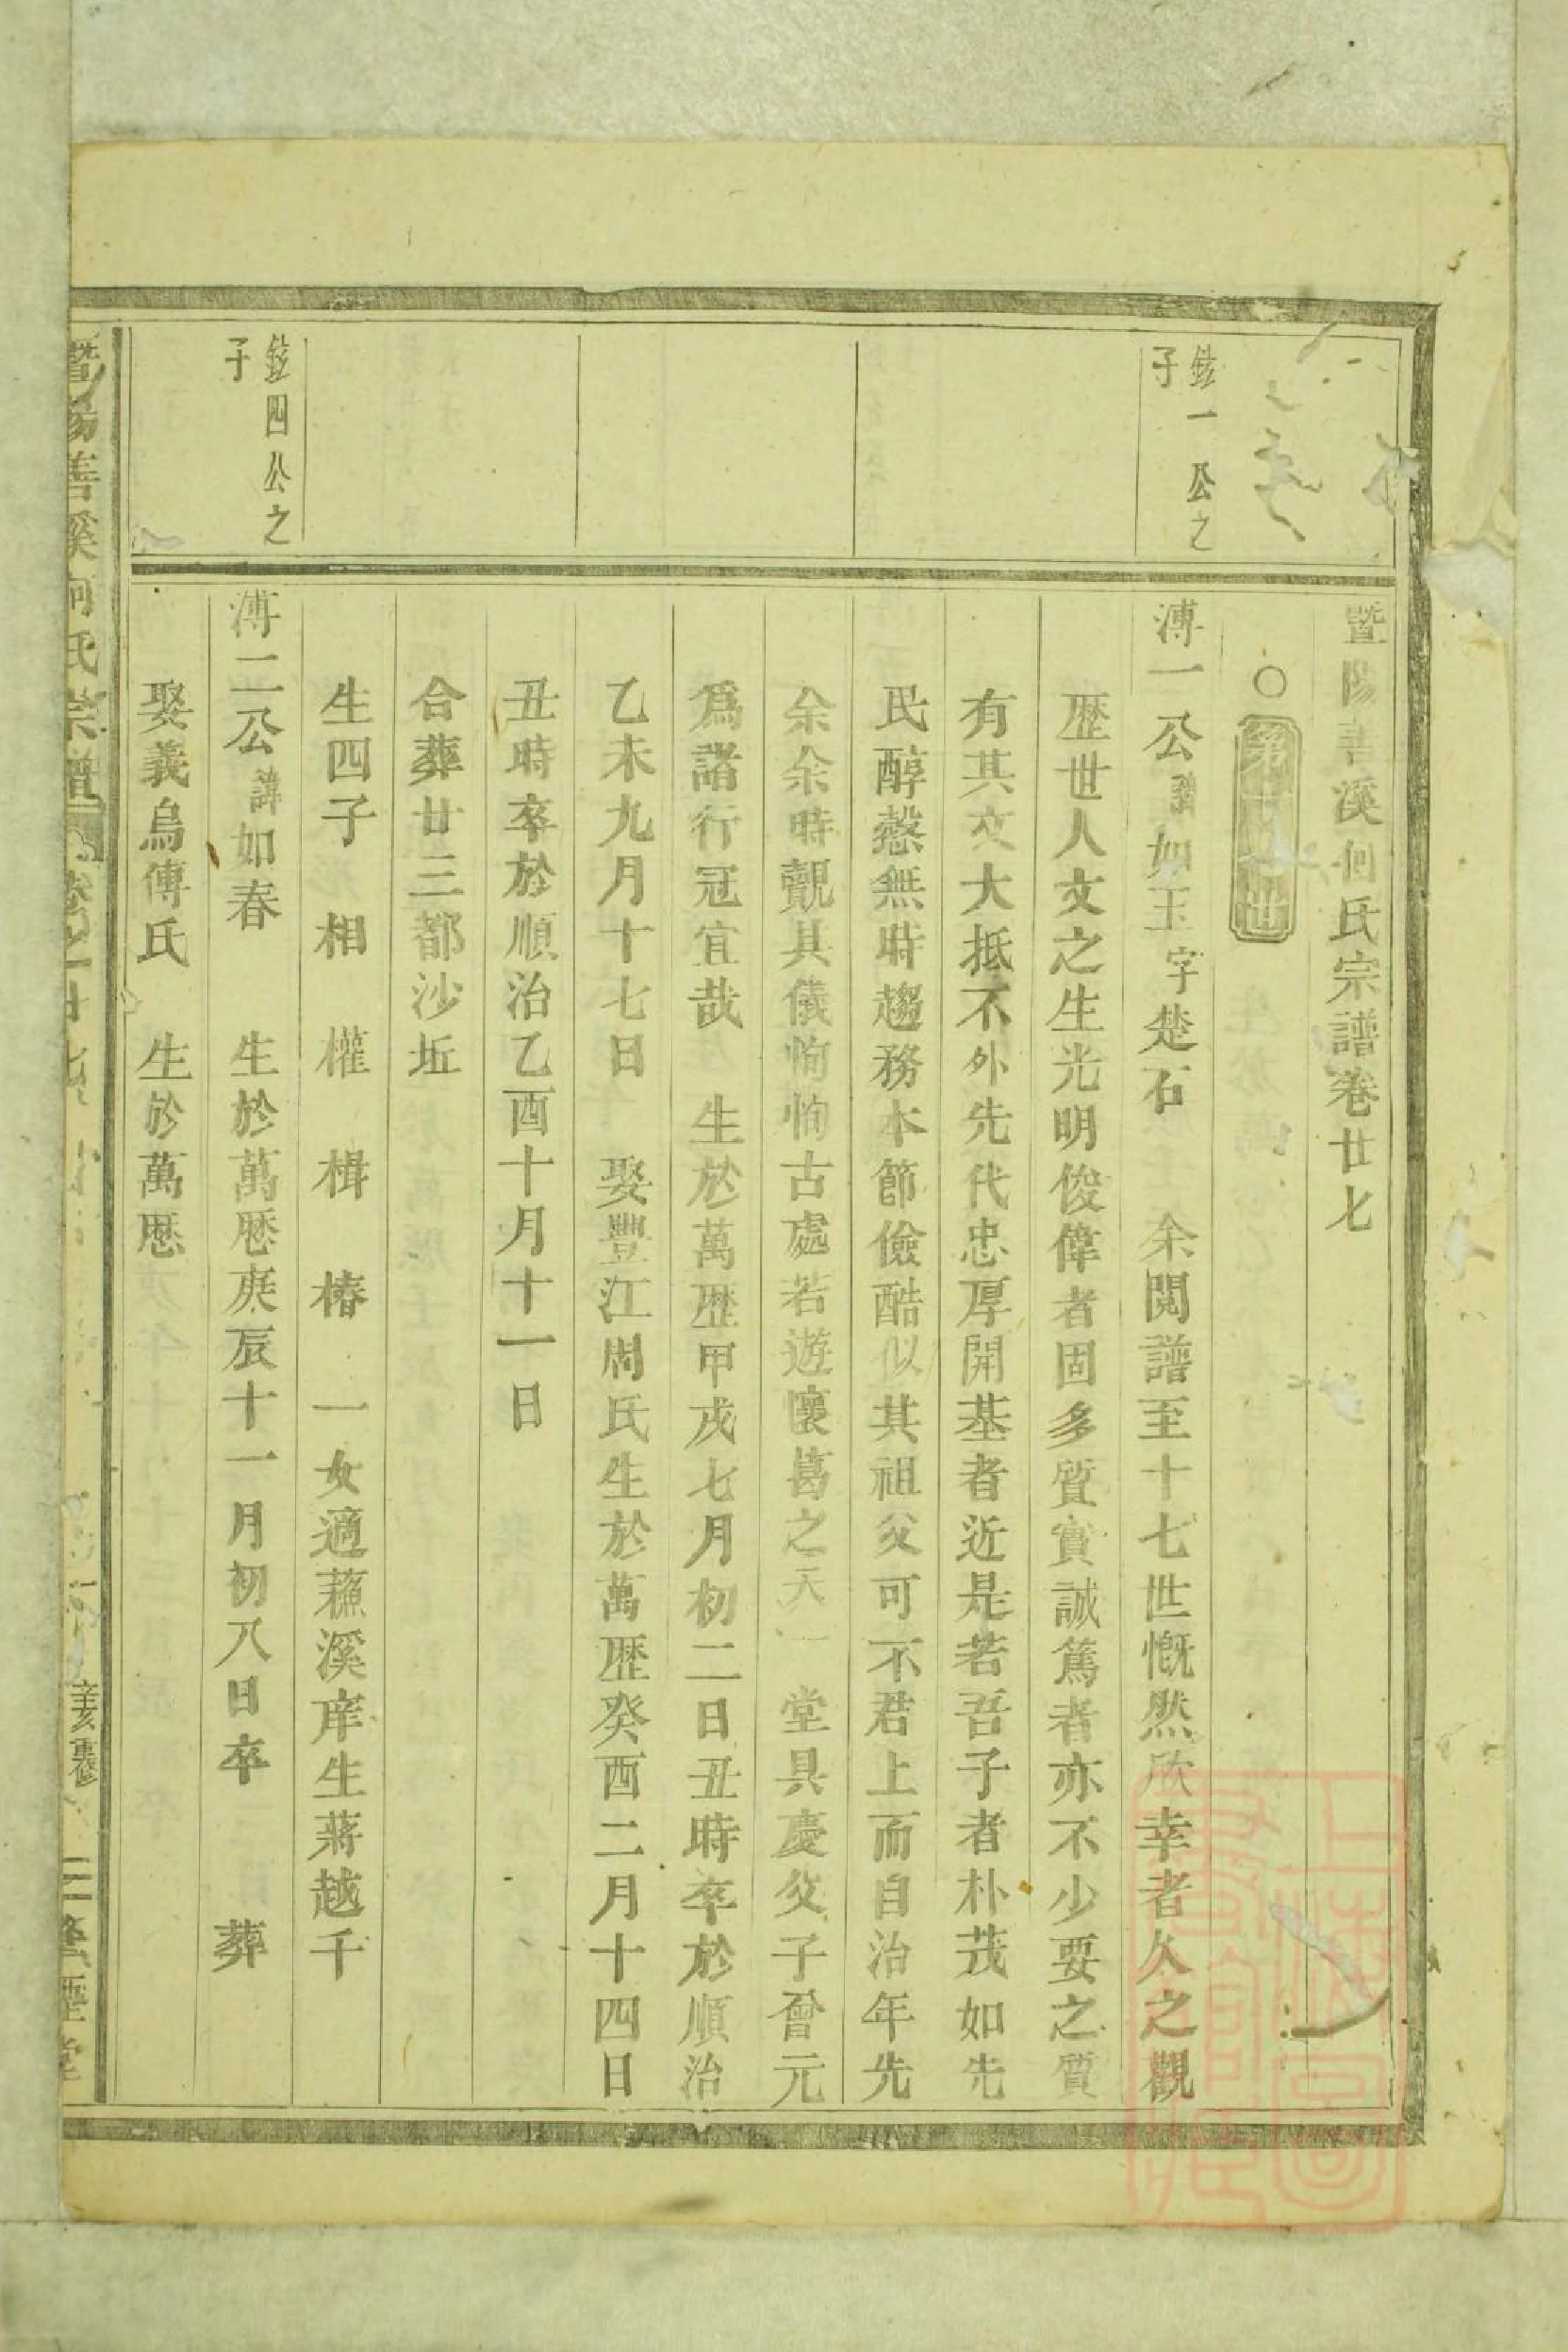 暨陽善溪何氏宗譜卷廿七
○第十七世
鉉一公之
子
溥一公諱如玉字楚石 余閱譜至十七世慨然欣幸者久之觀
歴世人文之生光明俊偉者固多質實誠篤者亦不少要之質
有其文大抵不外先代忠厚開基者近是若吾子者朴茂如先
民醇慤無時趨務本節儉酷似其祖父可不君上而自治年先
余余時覿其儀恂恂古處若遊懷葛之天一堂具慶父子曾元
爲諸行冠宜哉 生於萬歴甲戌七月初二日丑時卒於順治
乙未九月十七日 娶豐江周氏生於萬歴癸酉二月十四日
丑時卒於順治乙酉十月十一日
合葬廿三都沙坵
生四子 相 權 楫 椿 一女適蘓溪庠生蔣越千
鉉四公之
子
溥二公諱如春 生於萬厯庚辰十一月初八日卒 葬
娶義烏傅氏 生於萬厯
暨陽善溪何氏宗譜 卷之廿七 辛亥重修